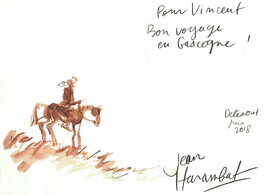 Pour Vincent
Bon voyage
en Gascogne !
Delémont
juin
2018
Jean
Harambat